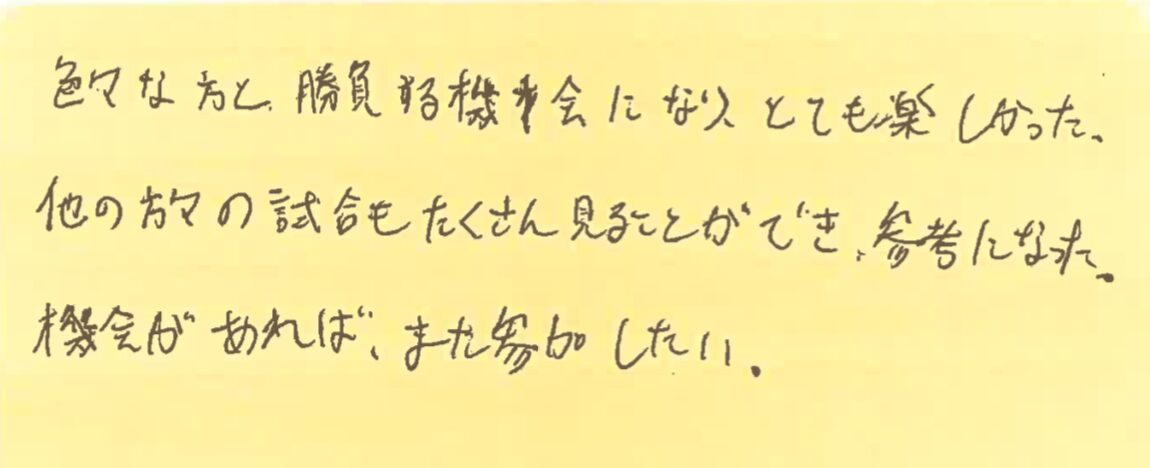 色々な方と、勝負する機会になり、とても楽しかった、
他の方々の試合もたくさん見ることができ、参考になった。
機会があれば、また参加したい。